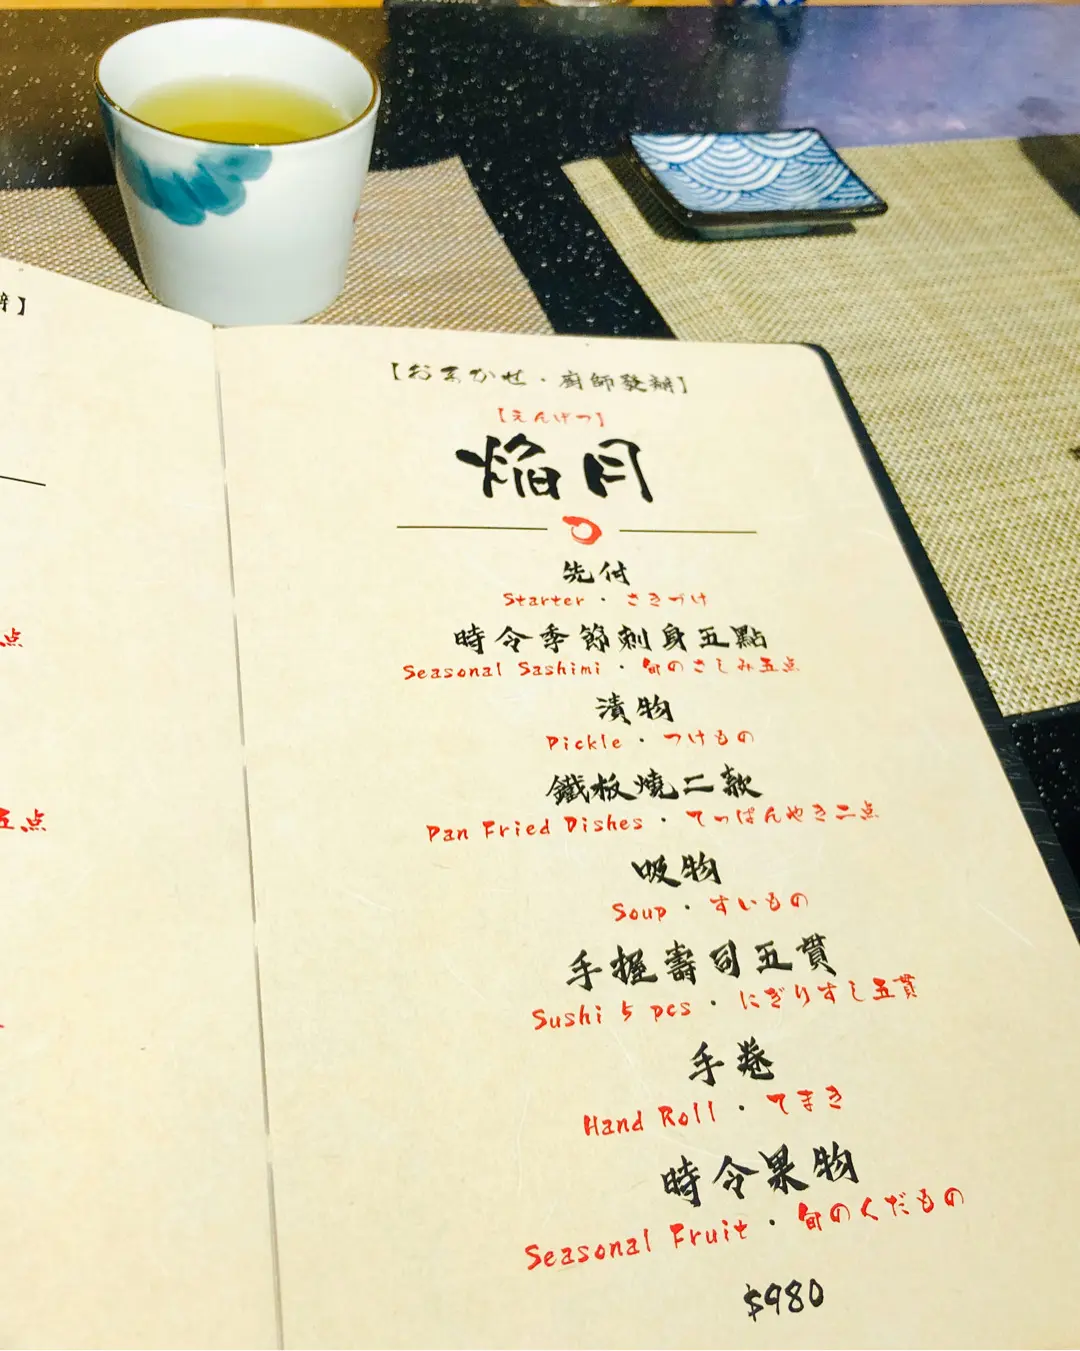 辦】
点
五点
【おまかせ・廚師發辦】
【えんげつ】
焔月
先付
Starter・さきづけ
時令季節刺身五點
Seasonal Sashimi・旬のさしみ五点
漬物
Pickle・つけもの
鐵板燒二款
Pan Fried Dishes・てっぱんやき二点
吸物
Soup・すいもの
手握壽司五貫
Sushi 5 pcs・にぎりすし五貫
手卷
Hand Roll・てまき
時令果物
Seasonal Fruit・旬のくだもの
$980